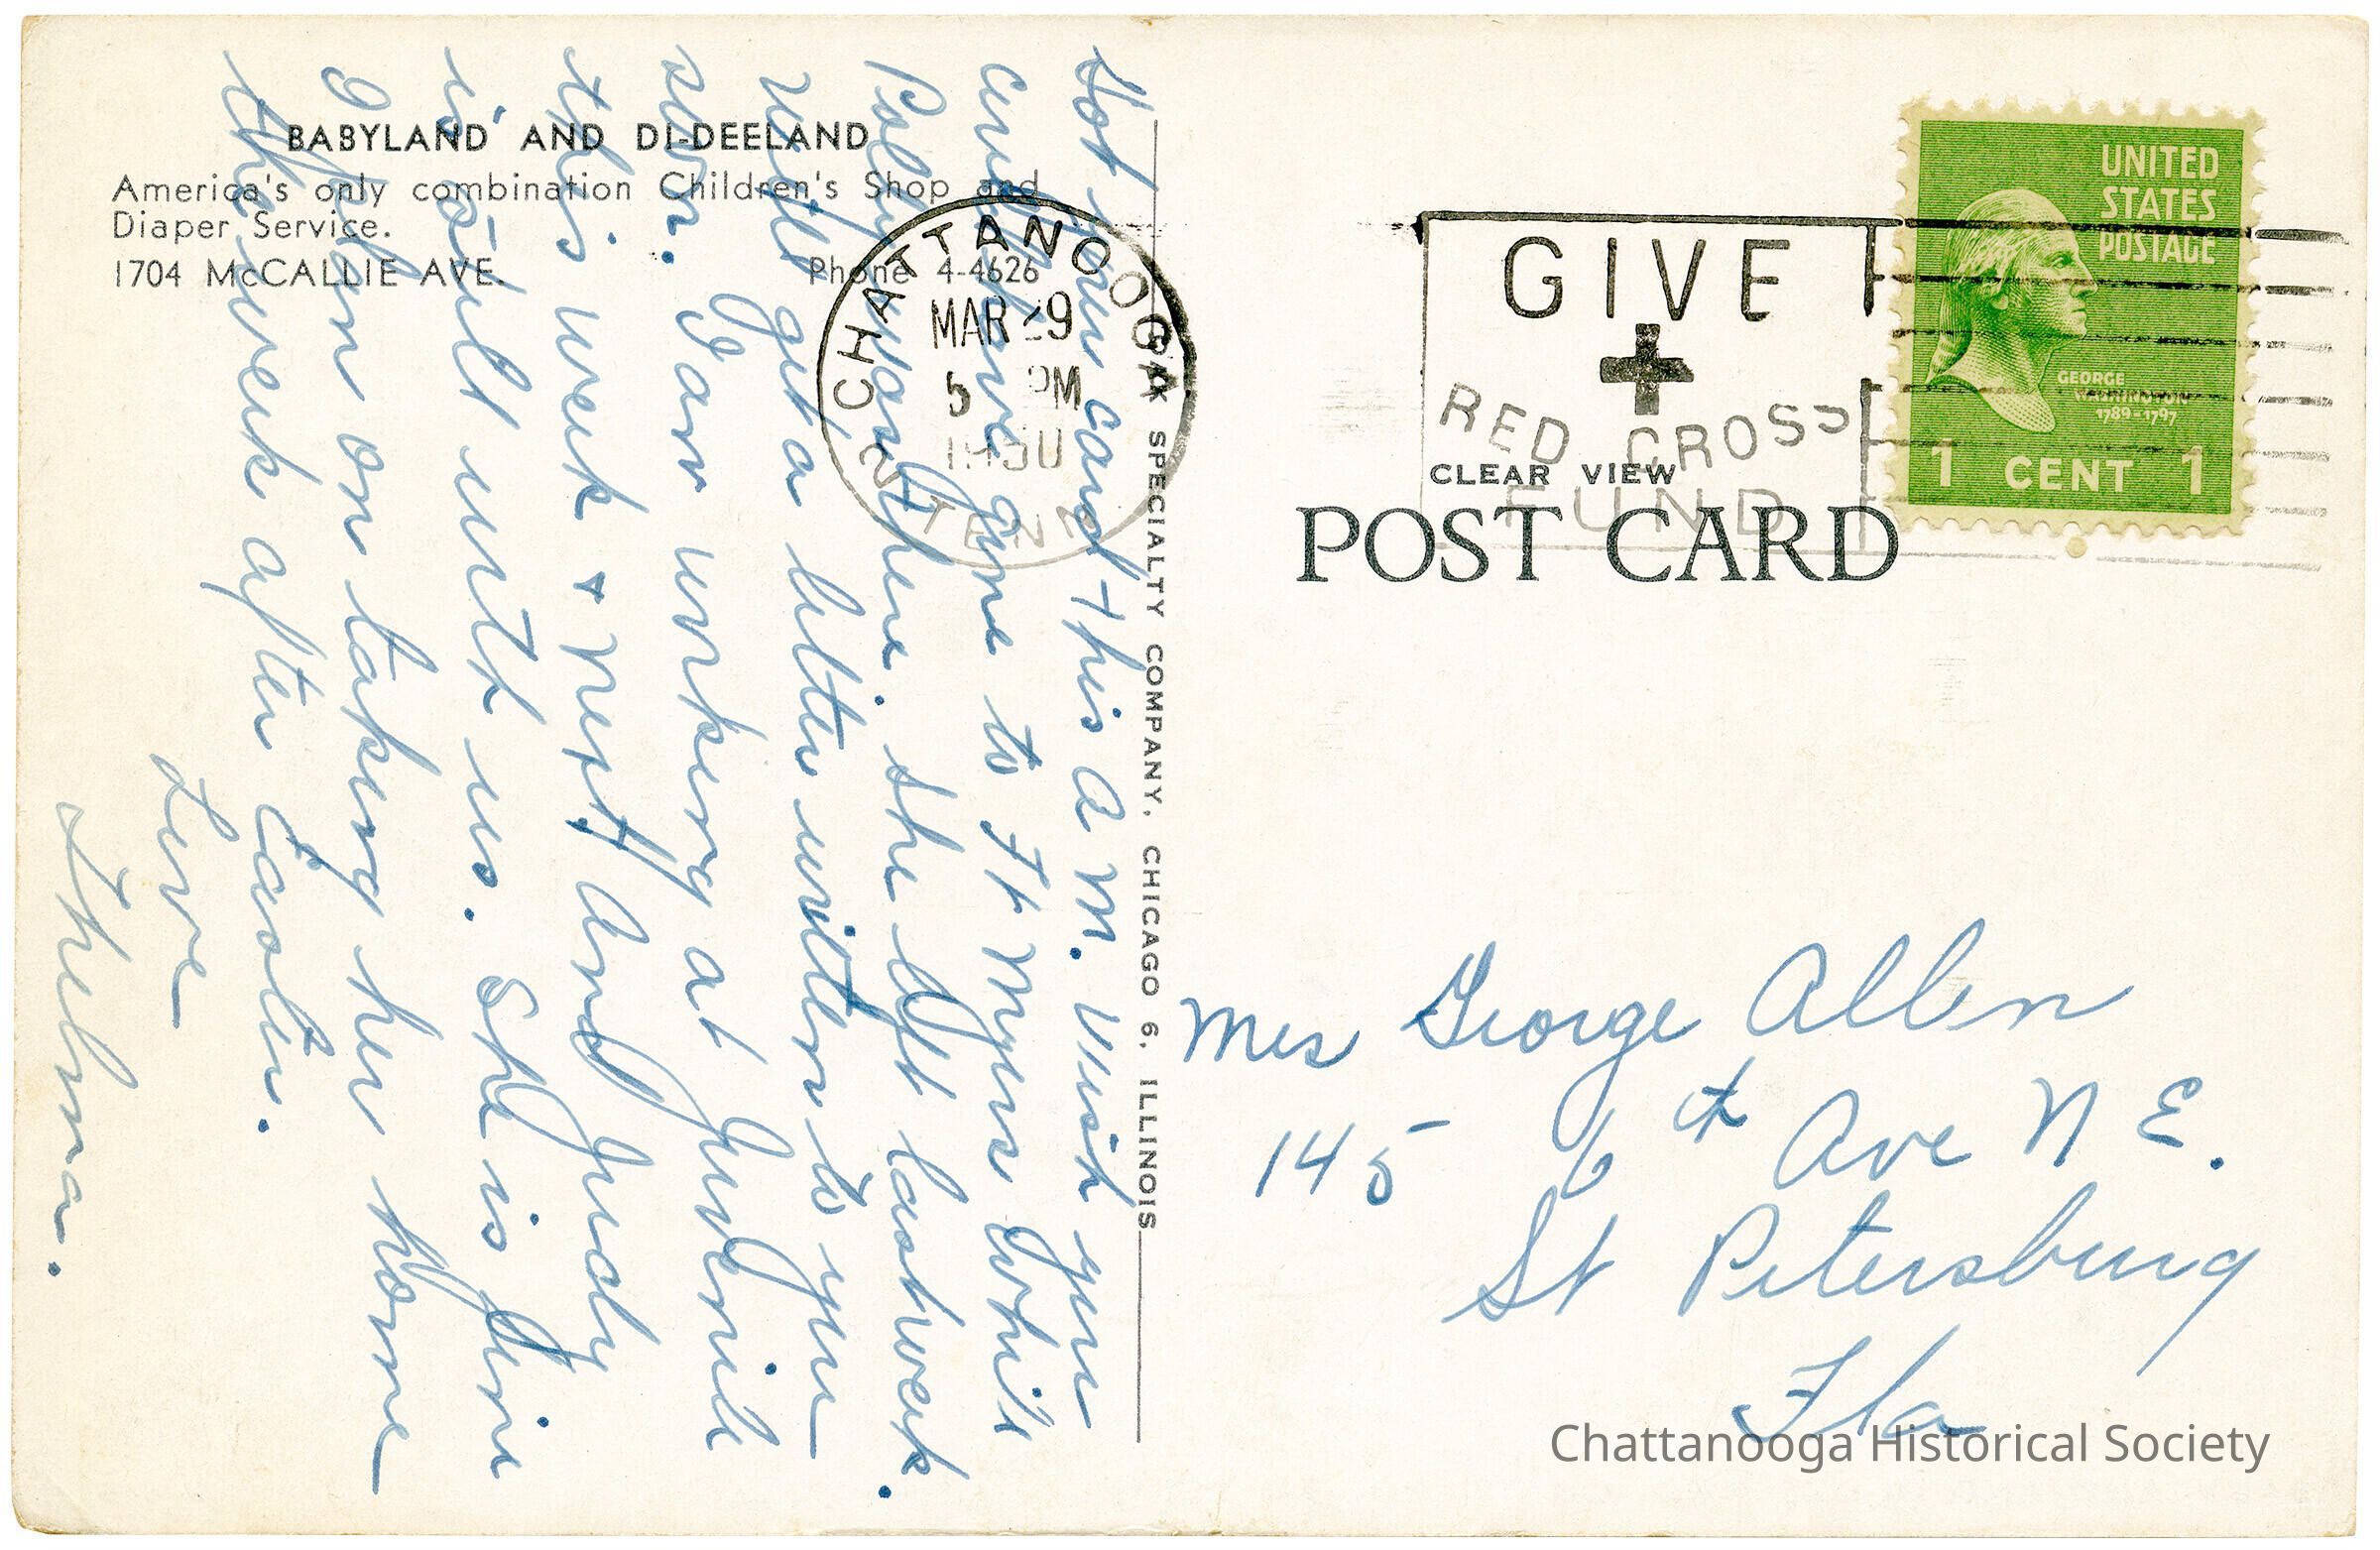 BABYLAND AND DI-DEELAND
America's only combination Children's Shop and
Diaper Service.
1704 McCALLIE AVE. Phone 4-4626
Got your card this A M. Wish you
could have gone to Ft Myers while
Polly was there. She left last week.
Will get a letter written to you
soon. I am working at Juvenile
this week + next and Judy
is still with us. She is fine
I plan on taking her home
the week after Easter.
Love
Thelma.
SPECIALTY COMPANY, CHICAGO 6, ILLINOIS
CHATTANOOGA, TENN
MAR 29
5 PM
1950
GIVE
RED CROSS
FUND
UNITED
STATES
POSTAGE
GEORGE
WASHINGTON
1789-1797
1 CENT 1
CLEAR VIEW
POST CARD
Mrs George Allen
145 6th Ave N E.
St Petersburg
Fla
Chattanooga Historical Society